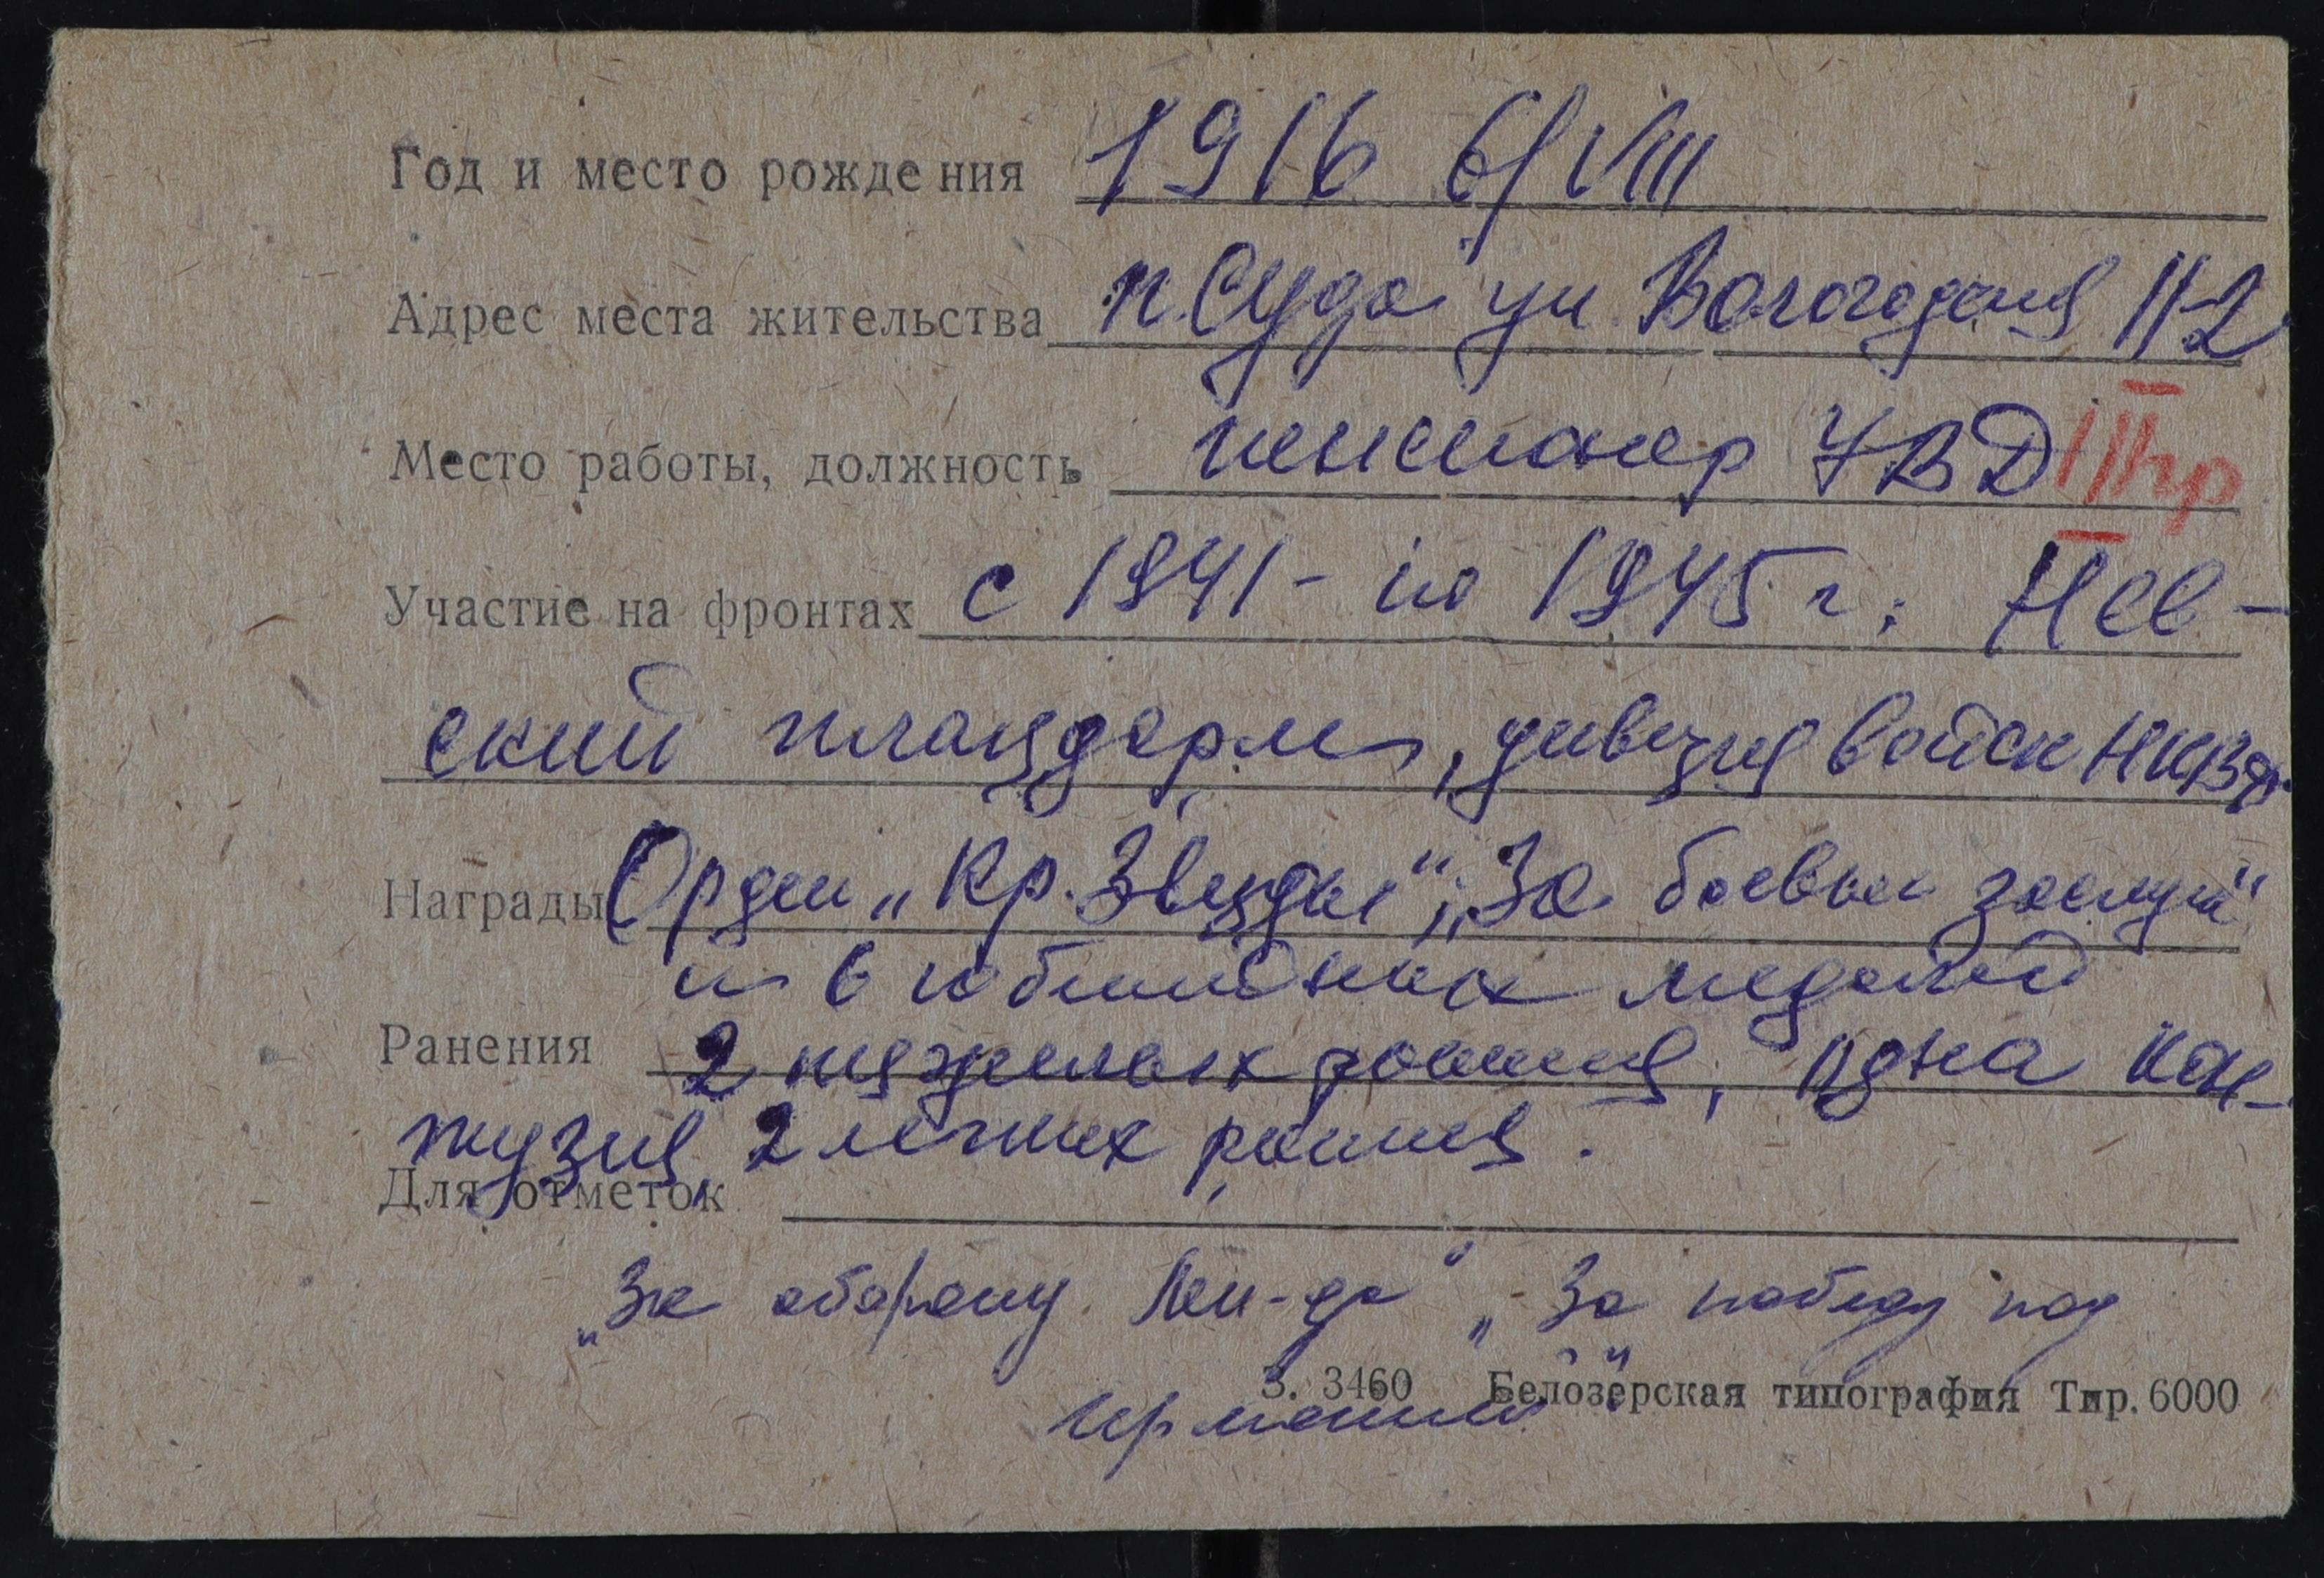 Год и место рождения 1916 6/VIII
Адрес места жительства п. Суда ул Вологодская 11-2
Место работы, должность пенсионер УВД III гр
Участие на фронтах с 1941 - по 1945 г; Нев-
ский плацдарм, дивизия войск НКВД
Награды Орден „Кр. Звезды“; „За боевые заслуги“
и 6 юбилейных медалей
Ранения 2 тяжелых ранения, одна кон-
тузия, 2 легких ранения.
Для отметок
„За оборону Лен-да“ „За победу над
Германией“
З. 3460 Белозерская типография Тир. 6000